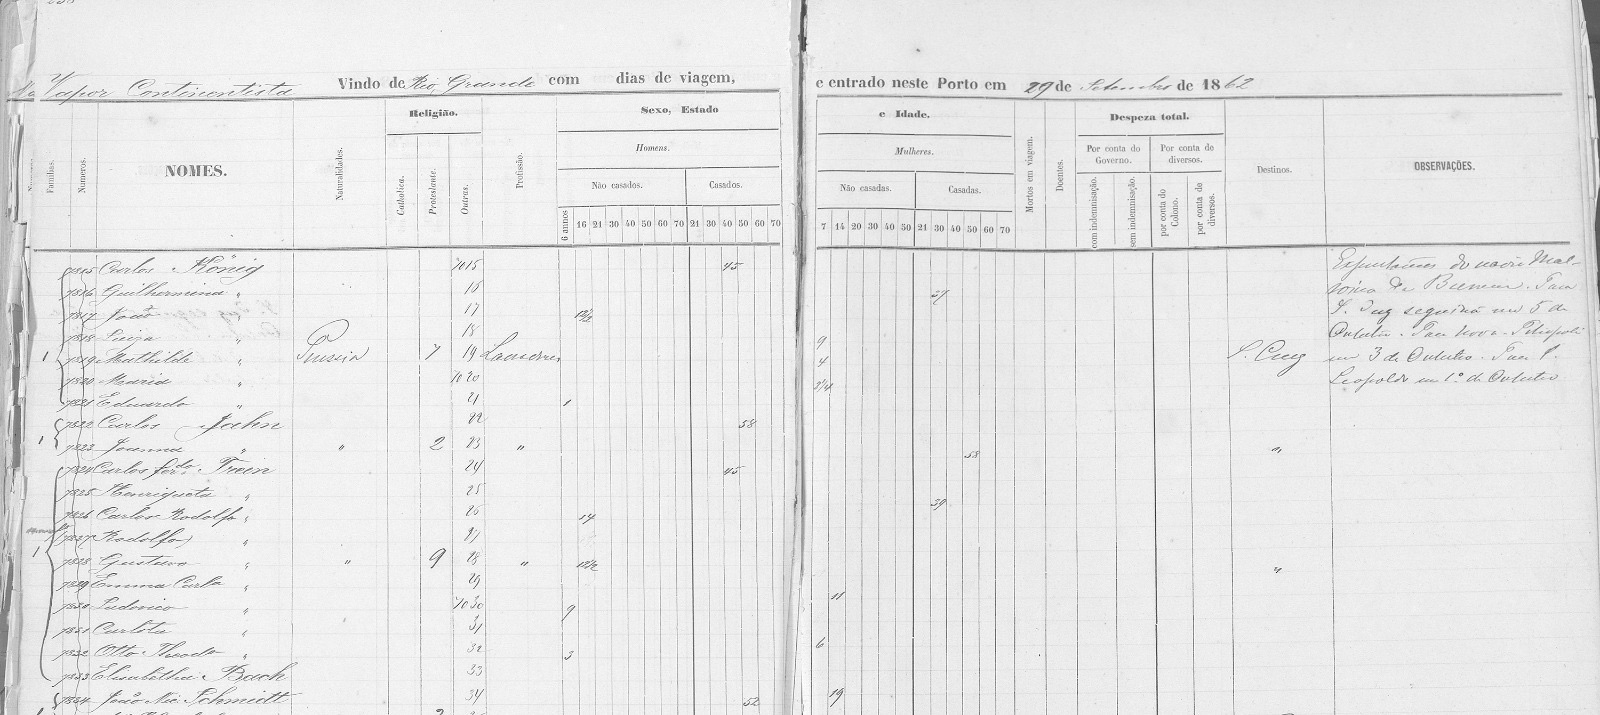 Vapor Continentista Vindo de Rio Grande com dias de viagem, e entrado neste Porto em 29 de Setembro de 1862
Religião. Sexo, Estado e Idade. Despeza total.
Homens. Mulheres. Por conta do Governo. Por conta de diversos.
Familias. Numeros. NOMES. Naturalidades. Catholica. Protestante. Outras. Profissão. Não casados. Casados. Não casadas. Casadas. Mortos em viagem. Doentes. com indemnisação. sem indemnisação. por conta do Colono. por conta de diversos. Destinos. OBSERVAÇÕES.
6 annos 16 21 30 40 50 60 70 21 30 40 50 60 70 7 14 20 30 40 50 21 30 40 50 60 70
7815 Carlos König 7015 45
7816 Guilhermina " 16 37
7817 João " 17 12/2
7818 " 18 9
1 7819 Mathilde " Prussia 7 19 4 S. Cruz
7820 Maria " 7020 3/4
7821 Eduardo " 21 1
7822 Carlos Jahn 22 58
1 7823 Joanna " " 2 23 " 58 "
7824 Carlos fer.do Trein 24 45
7825 Henriqueta " 25 39
7826 Carlos Rodolfo " 26 14
7827 Rodolfo " 27
1 7828 Gustavo " " 9 28 " 12/2 "
7829 Emma Carla " 29 11
7830 Ludovico " 7030 9
7831 Carlota " 31 6
7832 Otto Theodo " 32 3
7833 Elisabetha Bach 33 19
7834 João Nic. Schmidt 34 52
do navio
de Bremen. Para
S. Cruz seguirão em 5 de
Outubro. Para Nova Petropoli
em 3 de Outubro. Para S.
Leopoldo em 1º de Outubro